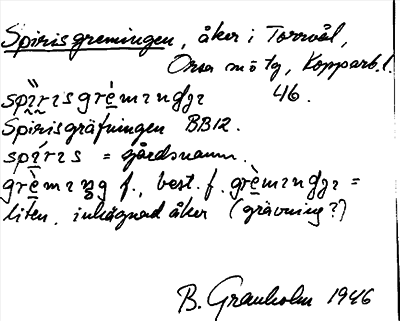 Spirisgremingen, åker i Torrvål,
Orsa sn ö tg, Kopparb. l.
spìrɪsgrèmɪnɡjɪ 46.
Spirisgräfningen BB12.
spírɪs = gårdsnamn.
grèmɪŋg f., best. f. grèmɪnɡjɪ =
liten, inhägnad åker (grävning?)
B. Granholm 1946